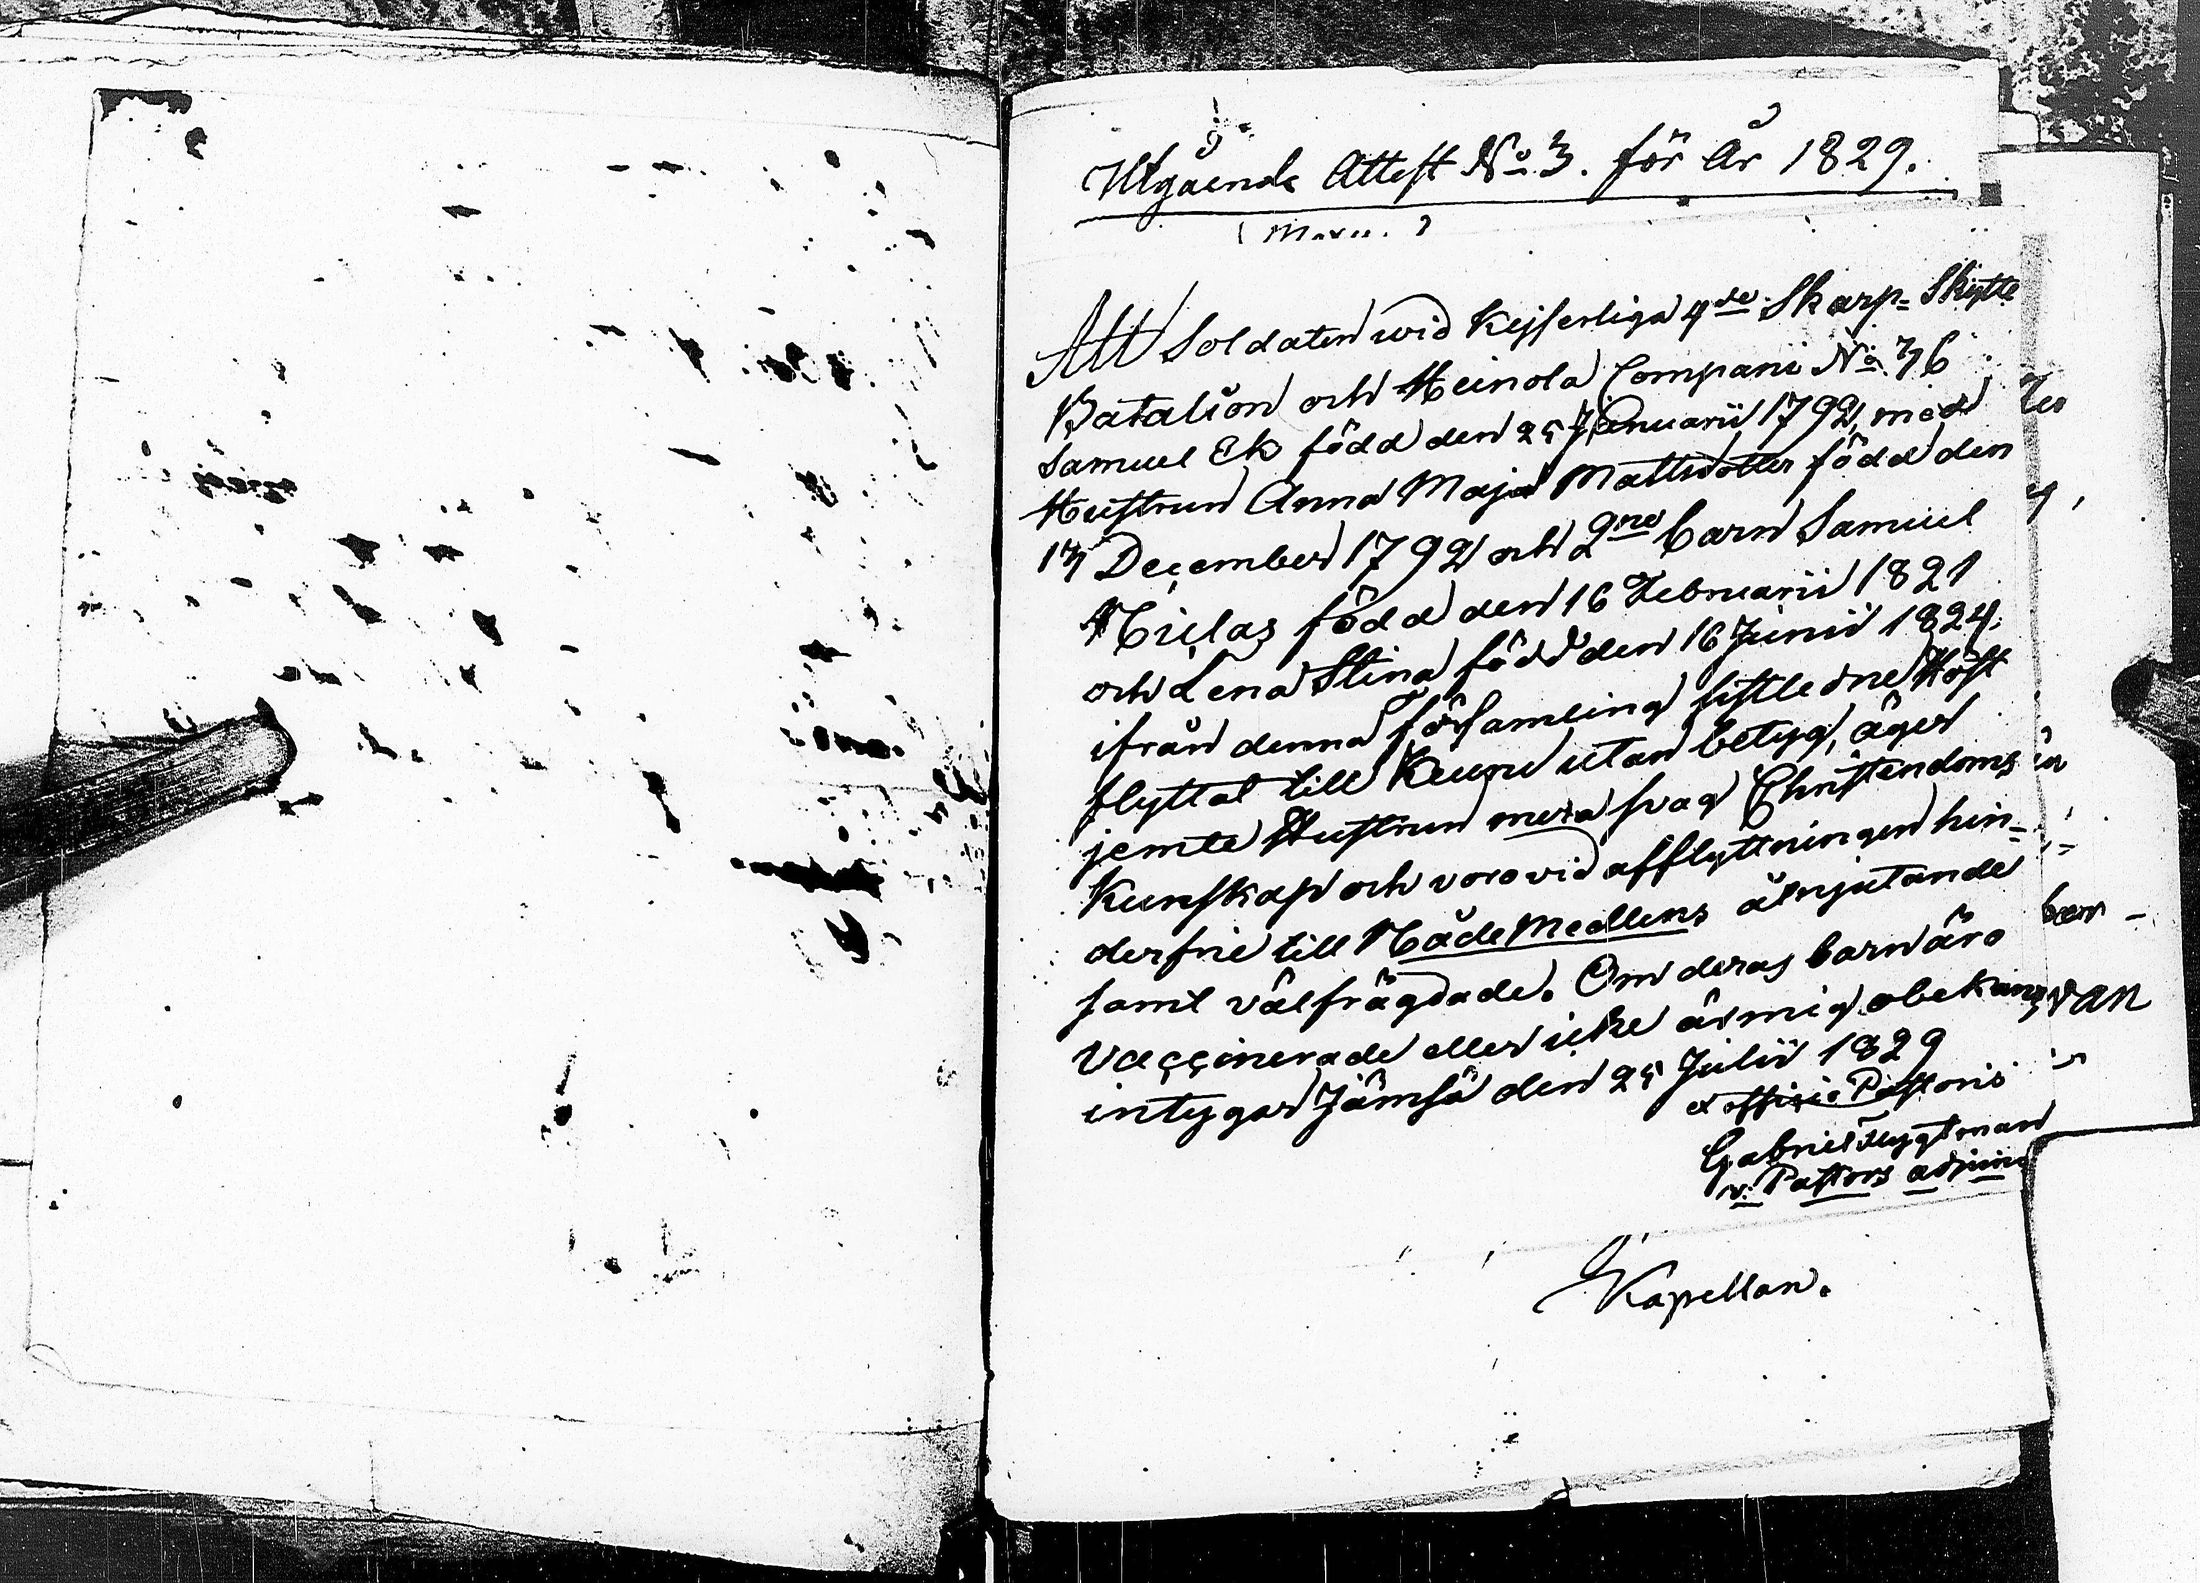 Utgående Attest No 3. för År 1829.
Att Soldaten wid Kejserliga 4de Skarp-Skytte
Batalion och Heinola Compani No 76
Samuel Ek född den 25 Januarii 1792, med
Hustrun Anna Maja Mattsdotter född den
17 December 1792 och 2ne barn Samuel
Niclas född den 16 Februarii 1821
och Lena Stina född den 16 Junii 1824.
ifrån denna församling sistledne Höst
flyttat till Keuru utan betyg, äger
jemte Hustrun mera svag Christendoms
Kunskap och voro vid afflyttningen hin-
derfrie till Nådemedlens åtnjutande
samt välfrägdade. Om deras barn äro
Vaccinerade eller icke är mig obekant,
intygar Jämsä den 25 Julii 1829
ex officio Pastoris
Gabriel
v: Pastors adjunct
Kapellan.